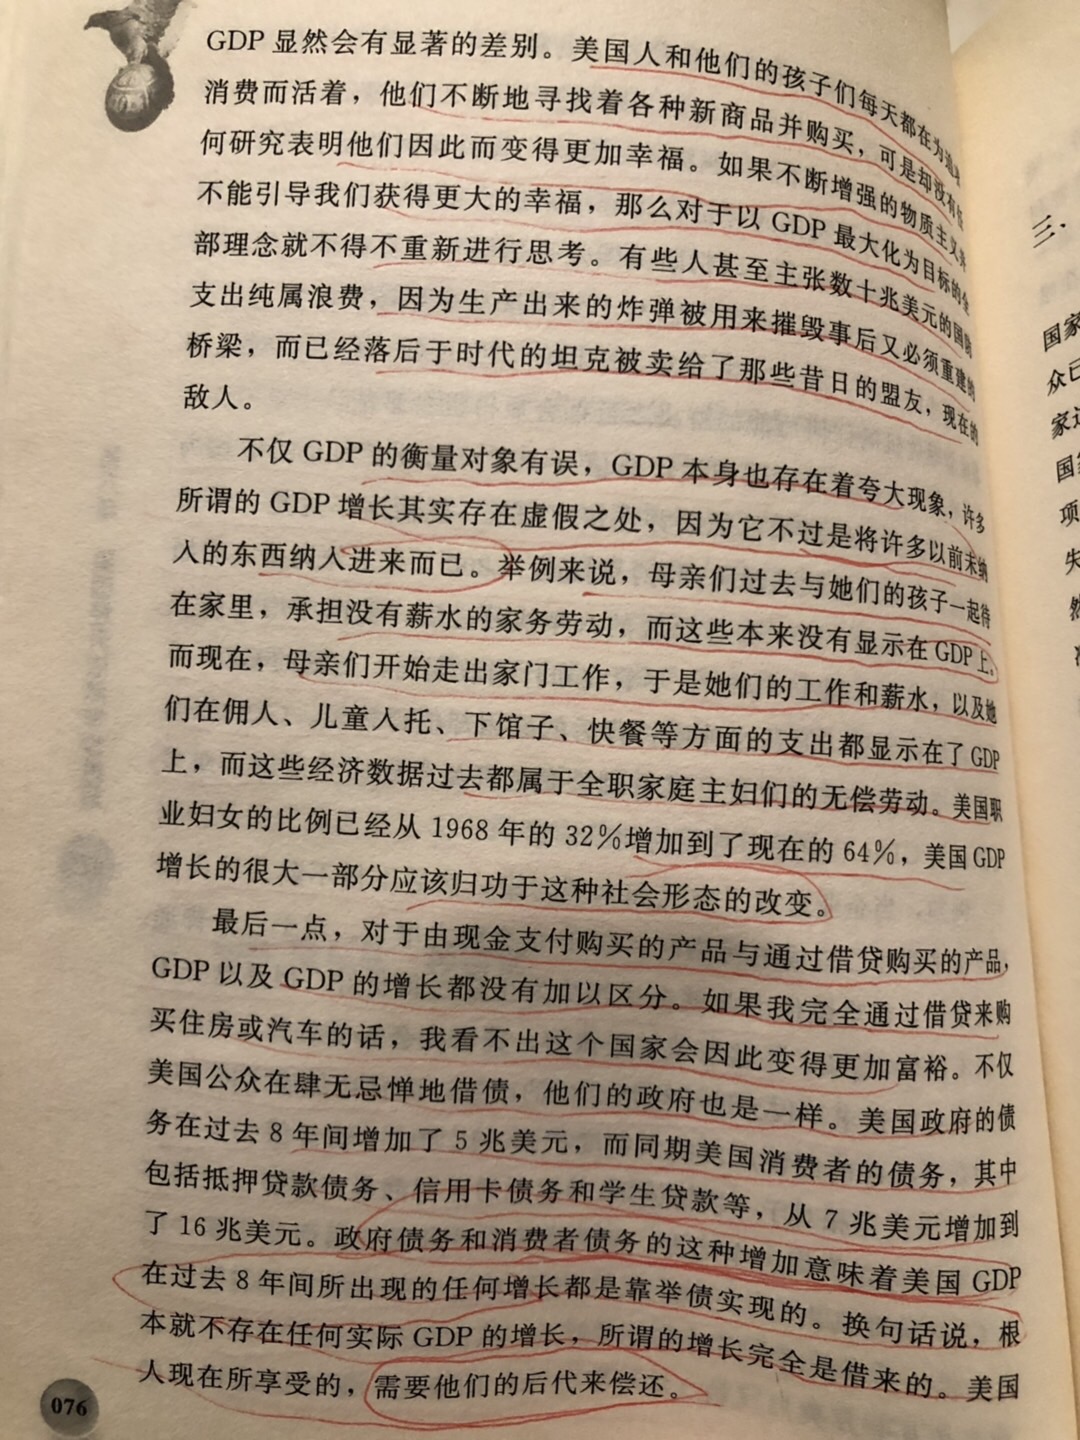 GDP 显然会有显著的差别。美国人和他们的孩子们每天都在为
消费而活着，他们不断地寻找着各种新商品并购买，可是却没有任
何研究表明他们因此而变得更加幸福。如果不断增强的物质主义并
不能引导我们获得更大的幸福，那么对于以 GDP 最大化为目标的全
部理念就不得不重新进行思考。有些人甚至主张数十兆美元的国防
支出纯属浪费，因为生产出来的炸弹被用来摧毁事后又必须重建的
桥梁，而已经落后于时代的坦克被卖给了那些昔日的盟友，现在的
敌人。
不仅 GDP 的衡量对象有误，GDP 本身也存在着夸大现象，许多
所谓的 GDP 增长其实存在虚假之处，因为它不过是将许多以前未纳
入的东西纳入进来而已。举例来说，母亲们过去与她们的孩子一起待
在家里，承担没有薪水的家务劳动，而这些本来没有显示在 GDP 上。
而现在，母亲们开始走出家门工作，于是她们的工作和薪水，以及她
们在佣人、儿童入托、下馆子、快餐等方面的支出都显示在了 GDP
上，而这些经济数据过去都属于全职家庭主妇们的无偿劳动。美国职
业妇女的比例已经从 1968 年的 32%增加到了现在的 64%，美国 GDP
增长的很大一部分应该归功于这种社会形态的改变。
最后一点，对于由现金支付购买的产品与通过借贷购买的产品，
GDP 以及 GDP 的增长都没有加以区分。如果我完全通过借贷来购
买住房或汽车的话，我看不出这个国家会因此变得更加富裕。不仅
美国公众在肆无忌惮地借债，他们的政府也是一样。美国政府的债
务在过去 8 年间增加了 5 兆美元，而同期美国消费者的债务，其中
包括抵押贷款债务、信用卡债务和学生贷款等，从 7 兆美元增加到
了 16 兆美元。政府债务和消费者债务的这种增加意味着美国 GDP
在过去 8 年间所出现的任何增长都是靠举债实现的。换句话说，根
本就不存在任何实际 GDP 的增长，所谓的增长完全是借来的。美国
人现在所享受的，需要他们的后代来偿还。
076
三.
国家
众已
家
国
项
失
然